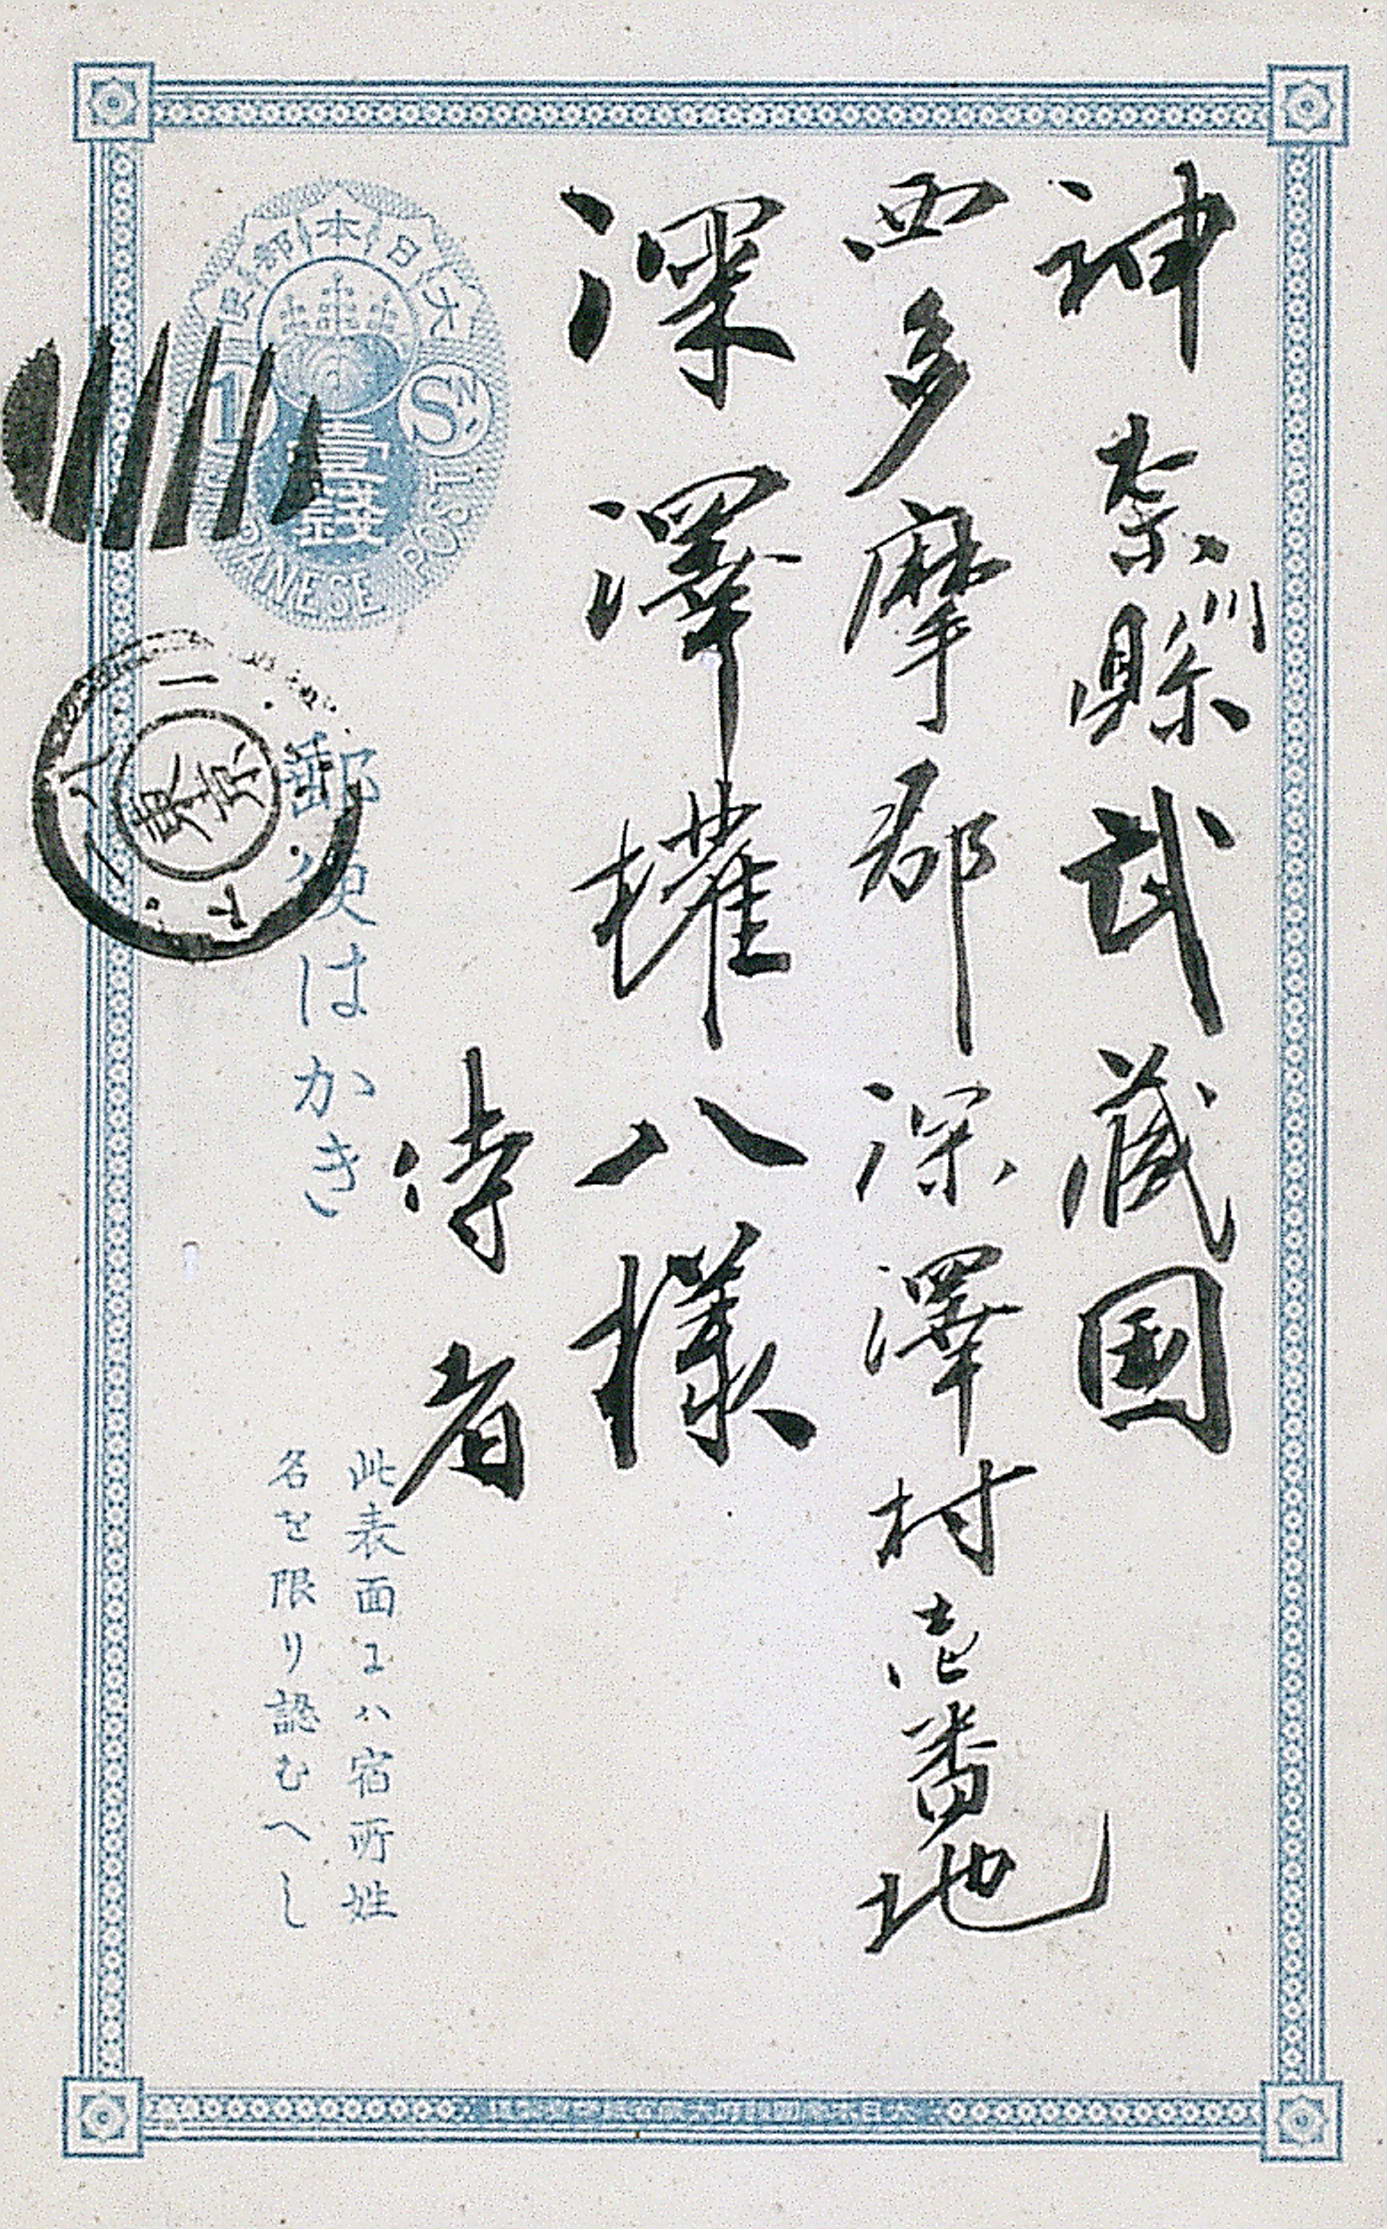 神奈川縣武蔵国
西多摩郡深澤村壱番地
深澤權八様
侍者
大日本郵便
1 Sン
壹錢
JAPANESE POST
東京
郵便はかき
此表面には宿所姓
名を限り認むへし